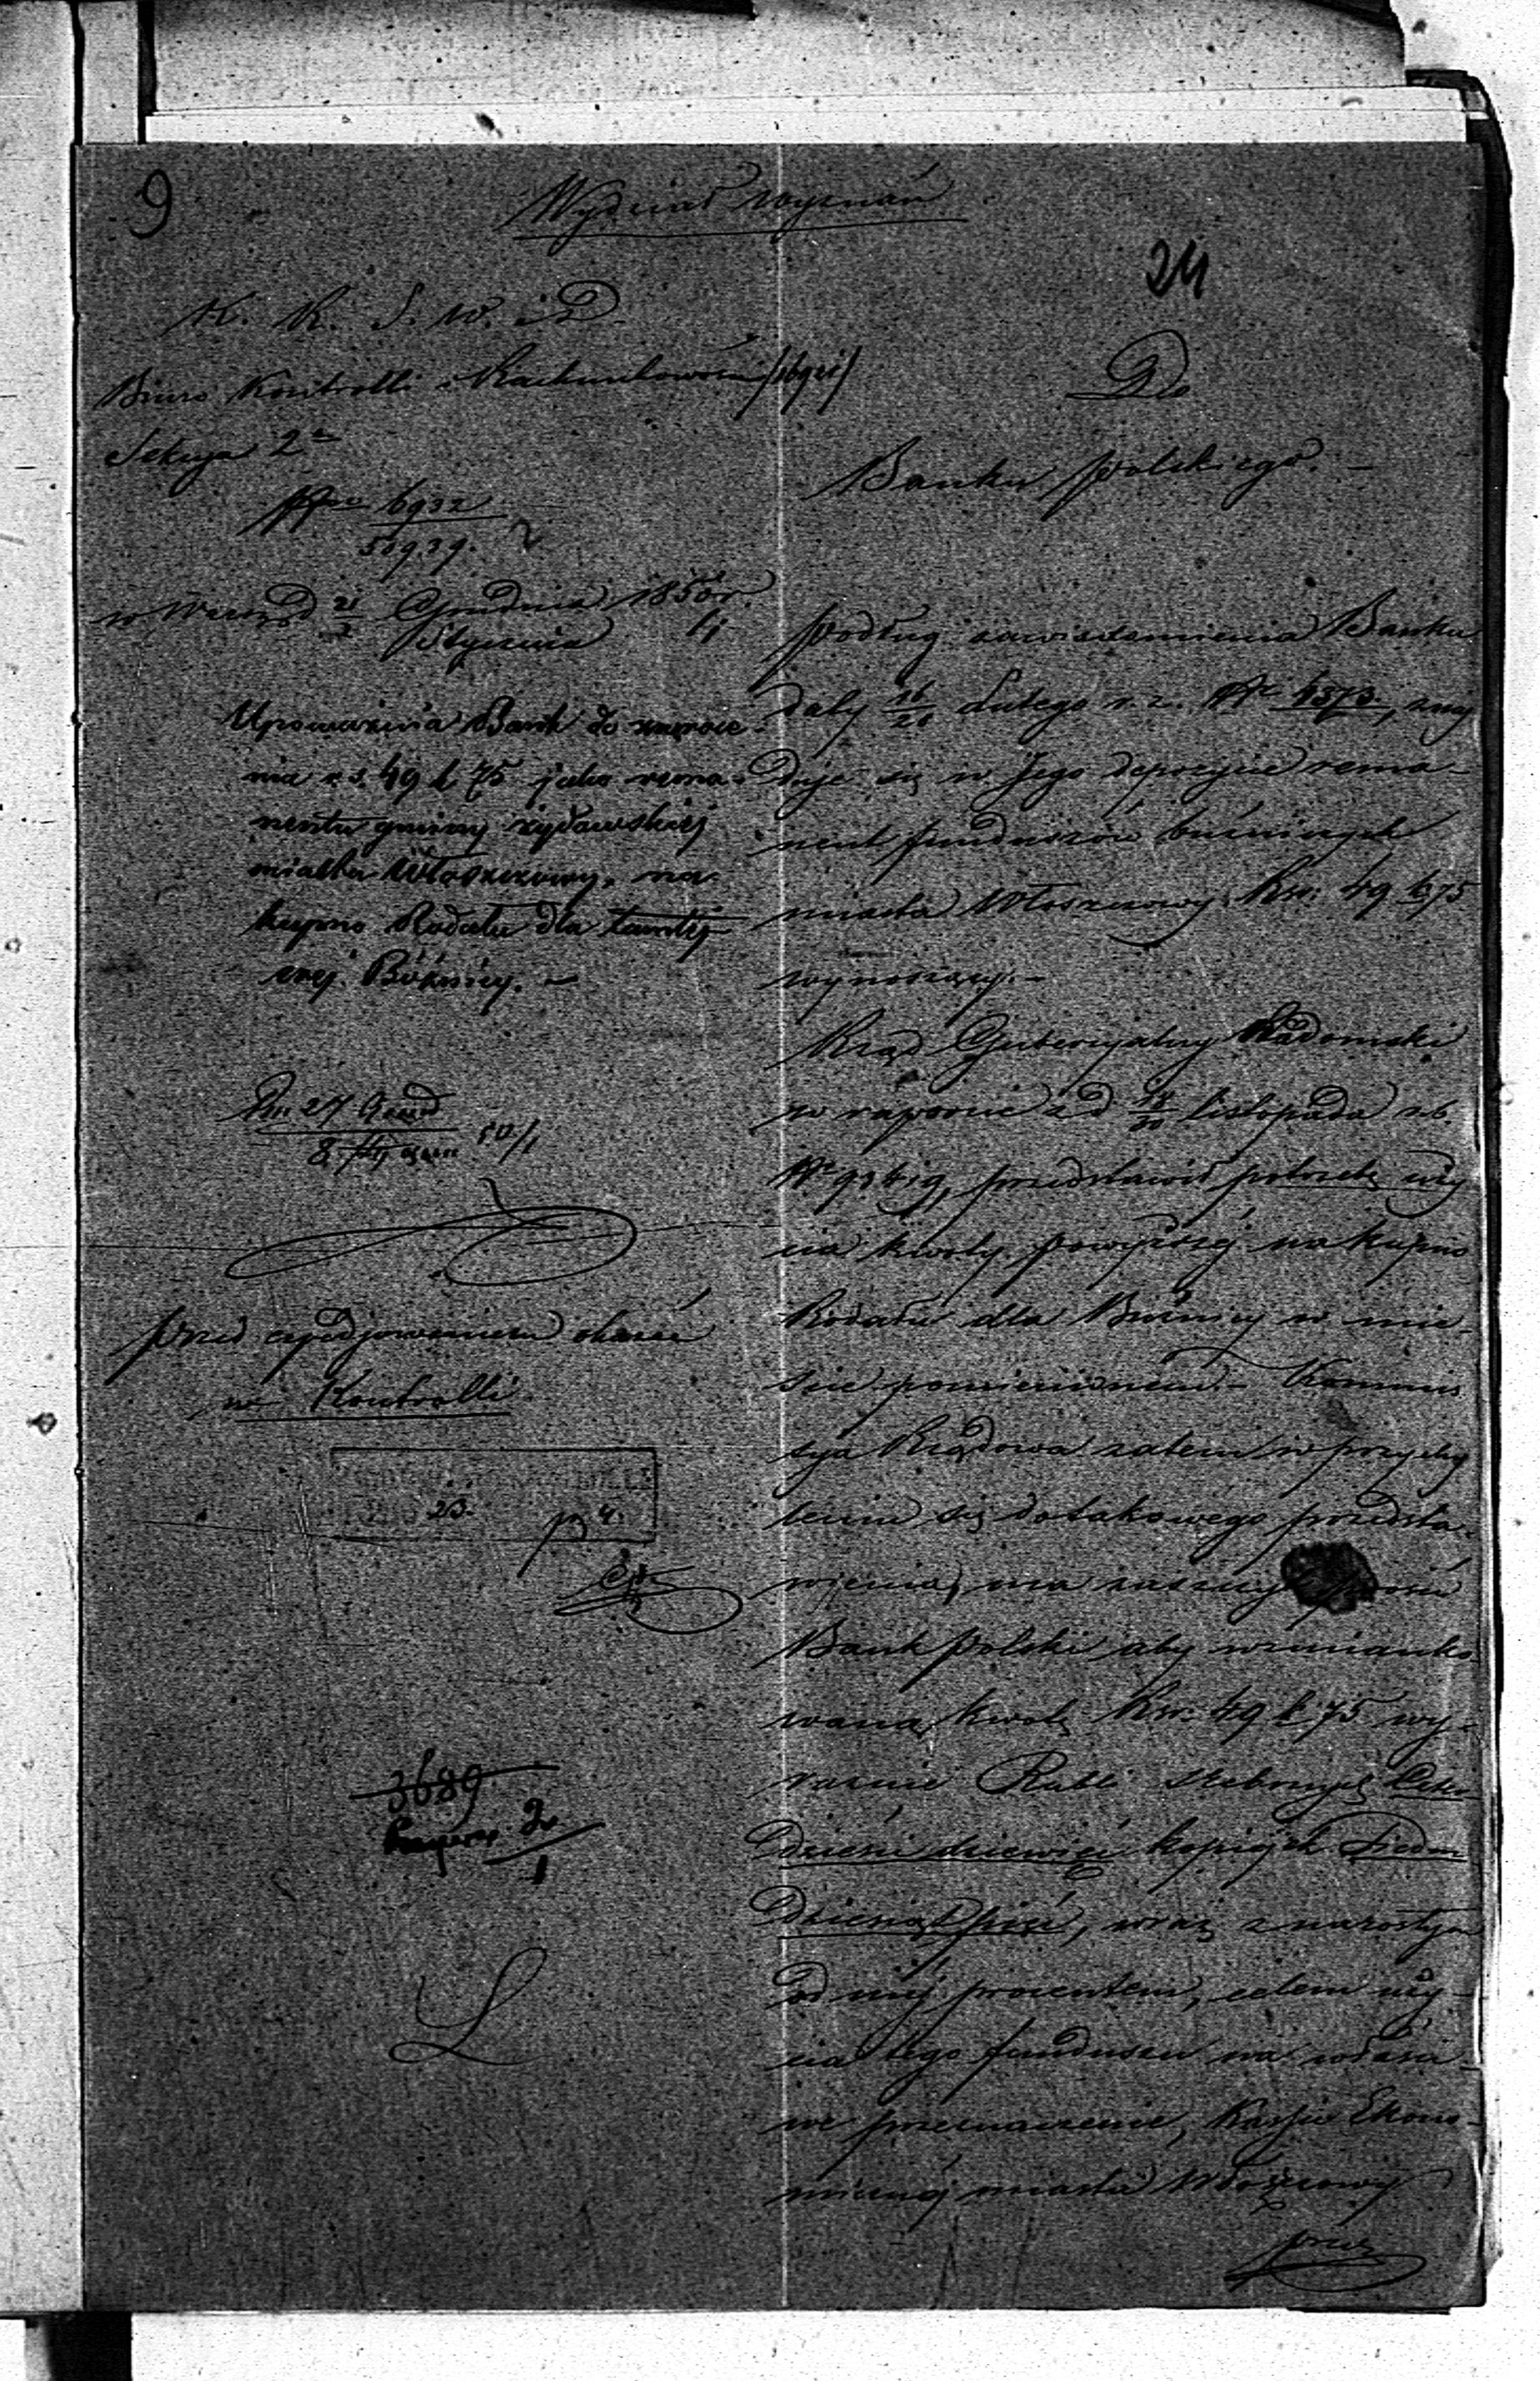 9
Wydział wyznań
24
K. R. S. W. i D.
Biuro Kontrolli i Rachunkowości
Sekcya 2a
6932
50939.
w Warsz d 21/2 Grudnia 1850/1 r.
Stycznia
Upoważnia Bank do zwróce-
nia r. s. 49 k 75 jako rema-
nentu gminy żydowskiej
miasta Włoszczowy, na
kupno Rodału dla tamtej-
szej Bóżnicy. –
27 Grud
8 Stycz
przed expedjowaniem okazać
w Kontrolli
23.
3689
L
Do
Banku polskiego. –
podług zawiadomienia Banku
daty 16/28 Lutego r. z. Nr 4573, znaj
duje się w Jego depozycie rema-
nent funduszów bóżniczych
miasta Włoszczowy Rsr: 49 k 75
wynoszący. –
Rząd Gubernjalny Radomski
w raporcie z d 18/30 Listopada r. b.
Nr 93419, przedstawił potrzebę uży
cia kwoty powyższej na kupno
Rodału dla Bóżnicy w mie-
ście pomienionem. – Kommis
sya Rządowa zatem w przychy
leniu się do takowego przedsta-
wienia, ma zaszczyt prosić
Bank polski aby wzmianko-
waną kwotę Rsr: 49 k 75 wy-
raźnie Rubli srebrnych Czter
dzieści dziewięć kopiejek Siedm
dziesiąt pięć, wraz z narosłym
od niej procentem, celem uży-
cia tego funduszu na właści-
we przeznaczenie, Kassie Ekono-
micznej miasta Włoszczowy
przez